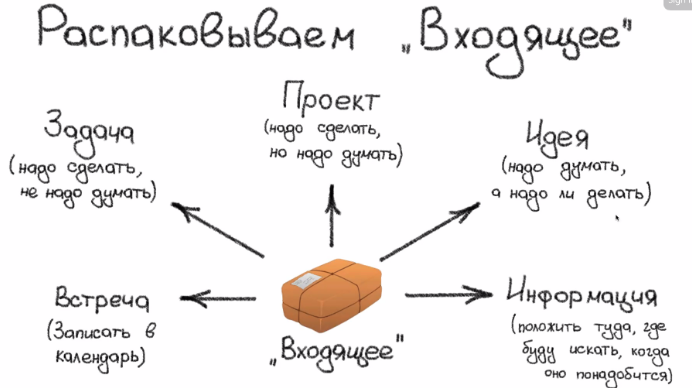 Распаковываем „Входящее"
Проект
(надо сделать,
но надо думать)
Задача
(надо сделать,
не надо думать)
Идея
(надо думать,
а надо ли делать)
Встреча
(Записать в
календарь)
„Входящее"
Информация
(положить туда, где
буду искать, когда
оно понадобится)